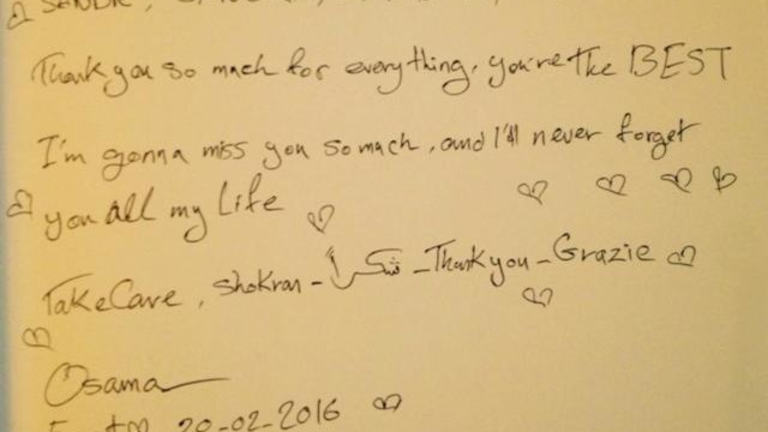 Thank you so much for everything, you're The BEST
I'm gonna miss you so much, and I'll never forget
you all my Life
Take Care, Shokran - شكراً - Thank you - Grazie
Osama
20-02-2016